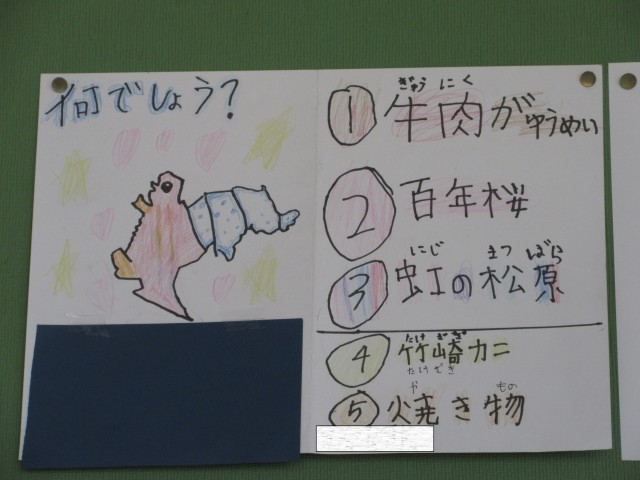 何でしょう?
① ぎゅう にく
牛肉がゆうめい
② 百年桜
にじ まつ ばら
③ 虹の松原
たけ ざき
④ 竹崎カニ
たけざき
や もの
⑤ 焼き物